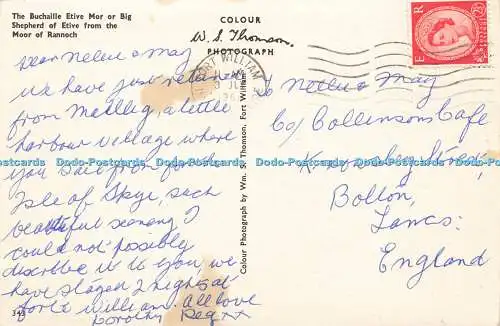 The Buchaille Etive Mor or Big
Shepherd of Etive from the
Moor of Rannoch
COLOUR
W. S. Thomson.
PHOTOGRAPH
Dear Nellie & May
we have just returned
from Mallig, a little
harbour village where
you sail from for
Isle of Skye, such
beautiful scenery I
could not possibly
describe it to you we
have stayed 2 nights at
Fort William. All love
Dorothy Reg xx
343
Colour Photograph by Wm. S. Thomson, Fort William
FORT WILLIAM
E R
Nellie & May
C/o Collinsons Cafe
Bolton,
Lancs.
England
Dodo-Postcards Dodo-Postcards Dodo-Postcards Dodo-Postcards